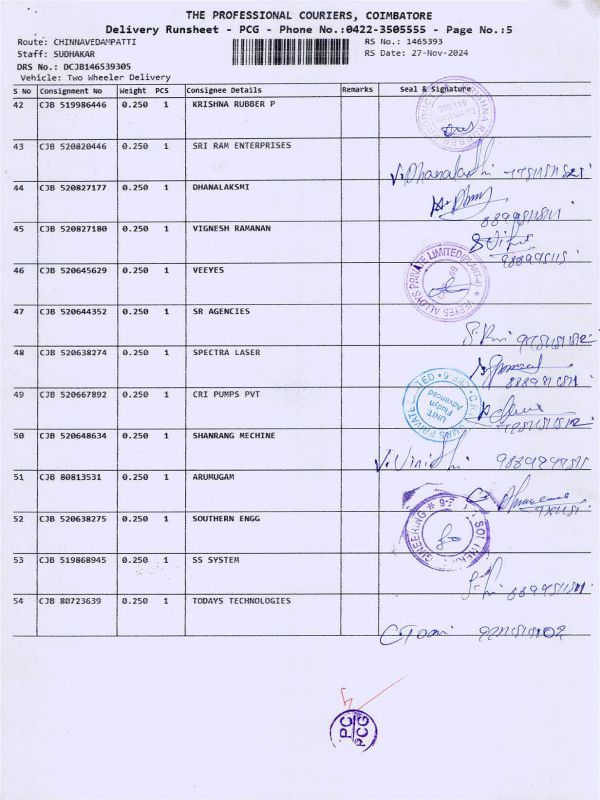 THE PROFESSIONAL COURIERS, COIMBATORE
Delivery Runsheet - PCG - Phone No.:0422-3505555 - Page No.:5
Route: CHINNAVEDAMPATTI RS No.: 1465393
Staff: SUDHAKAR RS Date: 27-Nov-2024
DRS No.: DCJB146539305
Vehicle: Two Wheeler Delivery
S No Consignment No Weight PCS Consignee Details Remarks Seal & Signature
42 CJB 519986446 0.250 1 KRISHNA RUBBER P
43 CJB 520820446 0.250 1 SRI RAM ENTERPRISES
V. Dhanalakshi
44 CJB 520827177 0.250 1 DHANALAKSMI
45 CJB 520827180 0.250 1 VIGNESH RAMANAN
46 CJB 520645629 0.250 1 VEEYES
VEEYES ALLOYS PRIVATE LIMITED
47 CJB 520644352 0.250 1 SR AGENCIES
48 CJB 520638274 0.250 1 SPECTRA LASER
49 CJB 520667892 0.250 1 CRI PUMPS PVT
Advanced
50 CJB 520648634 0.250 1 SHANRANG MECHINE
51 CJB 80813531 0.250 1 ARUMUGAM
52 CJB 520638275 0.250 1 SOUTHERN ENGG
53 CJB 519868945 0.250 1 SS SYSTEM
54 CJB 80723639 0.250 1 TODAYS TECHNOLOGIES
PC
PCG